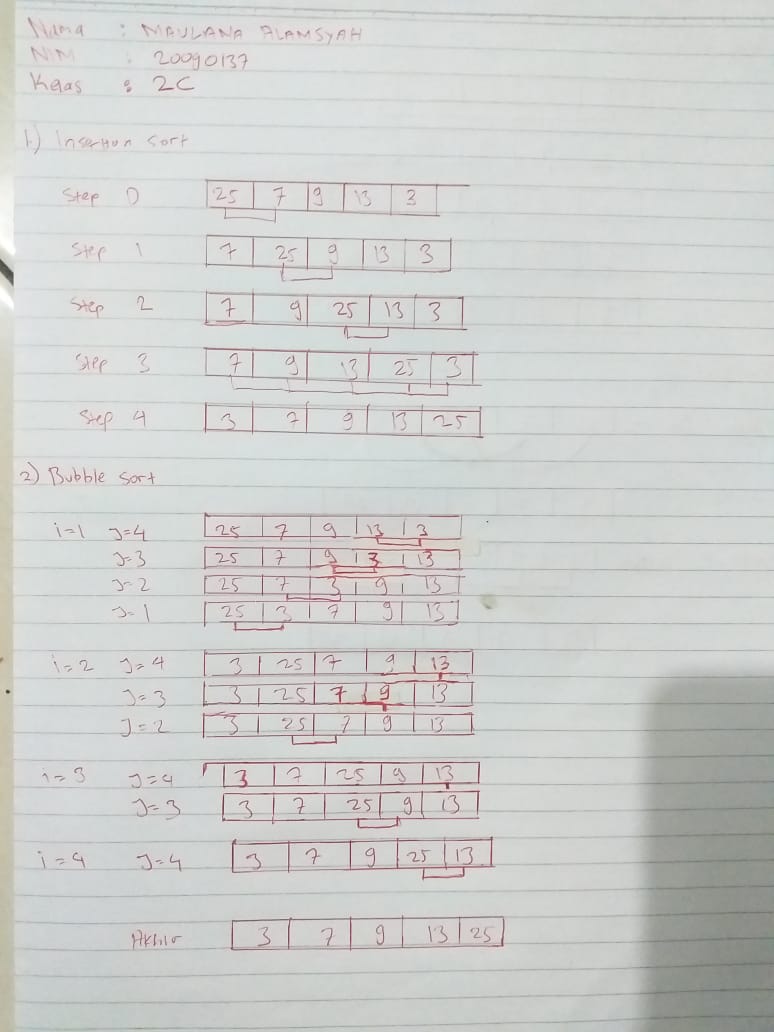 Nama : MAULANA ALAMSYAH
NIM : 20090137
Kelas : 2C
1.) Insertion Sort
Step 0 25 7 9 13 3
Step 1 7 25 9 13 3
Step 2 7 9 25 13 3
Step 3 7 9 13 25 3
Step 4 3 7 9 13 25
2) Bubble Sort
i=1 J=4 25 7 9 13 3
J=3 25 7 9 3 13
J=2 25 7 3 9 13
J=1 25 3 7 9 13
i=2 J=4 3 25 7 9 13
J=3 3 25 7 9 13
J=2 3 25 7 9 13
i=3 J=4 3 7 25 9 13
J=3 3 7 25 9 13
i=4 J=4 3 7 9 25 13
Akhir 3 7 9 13 25